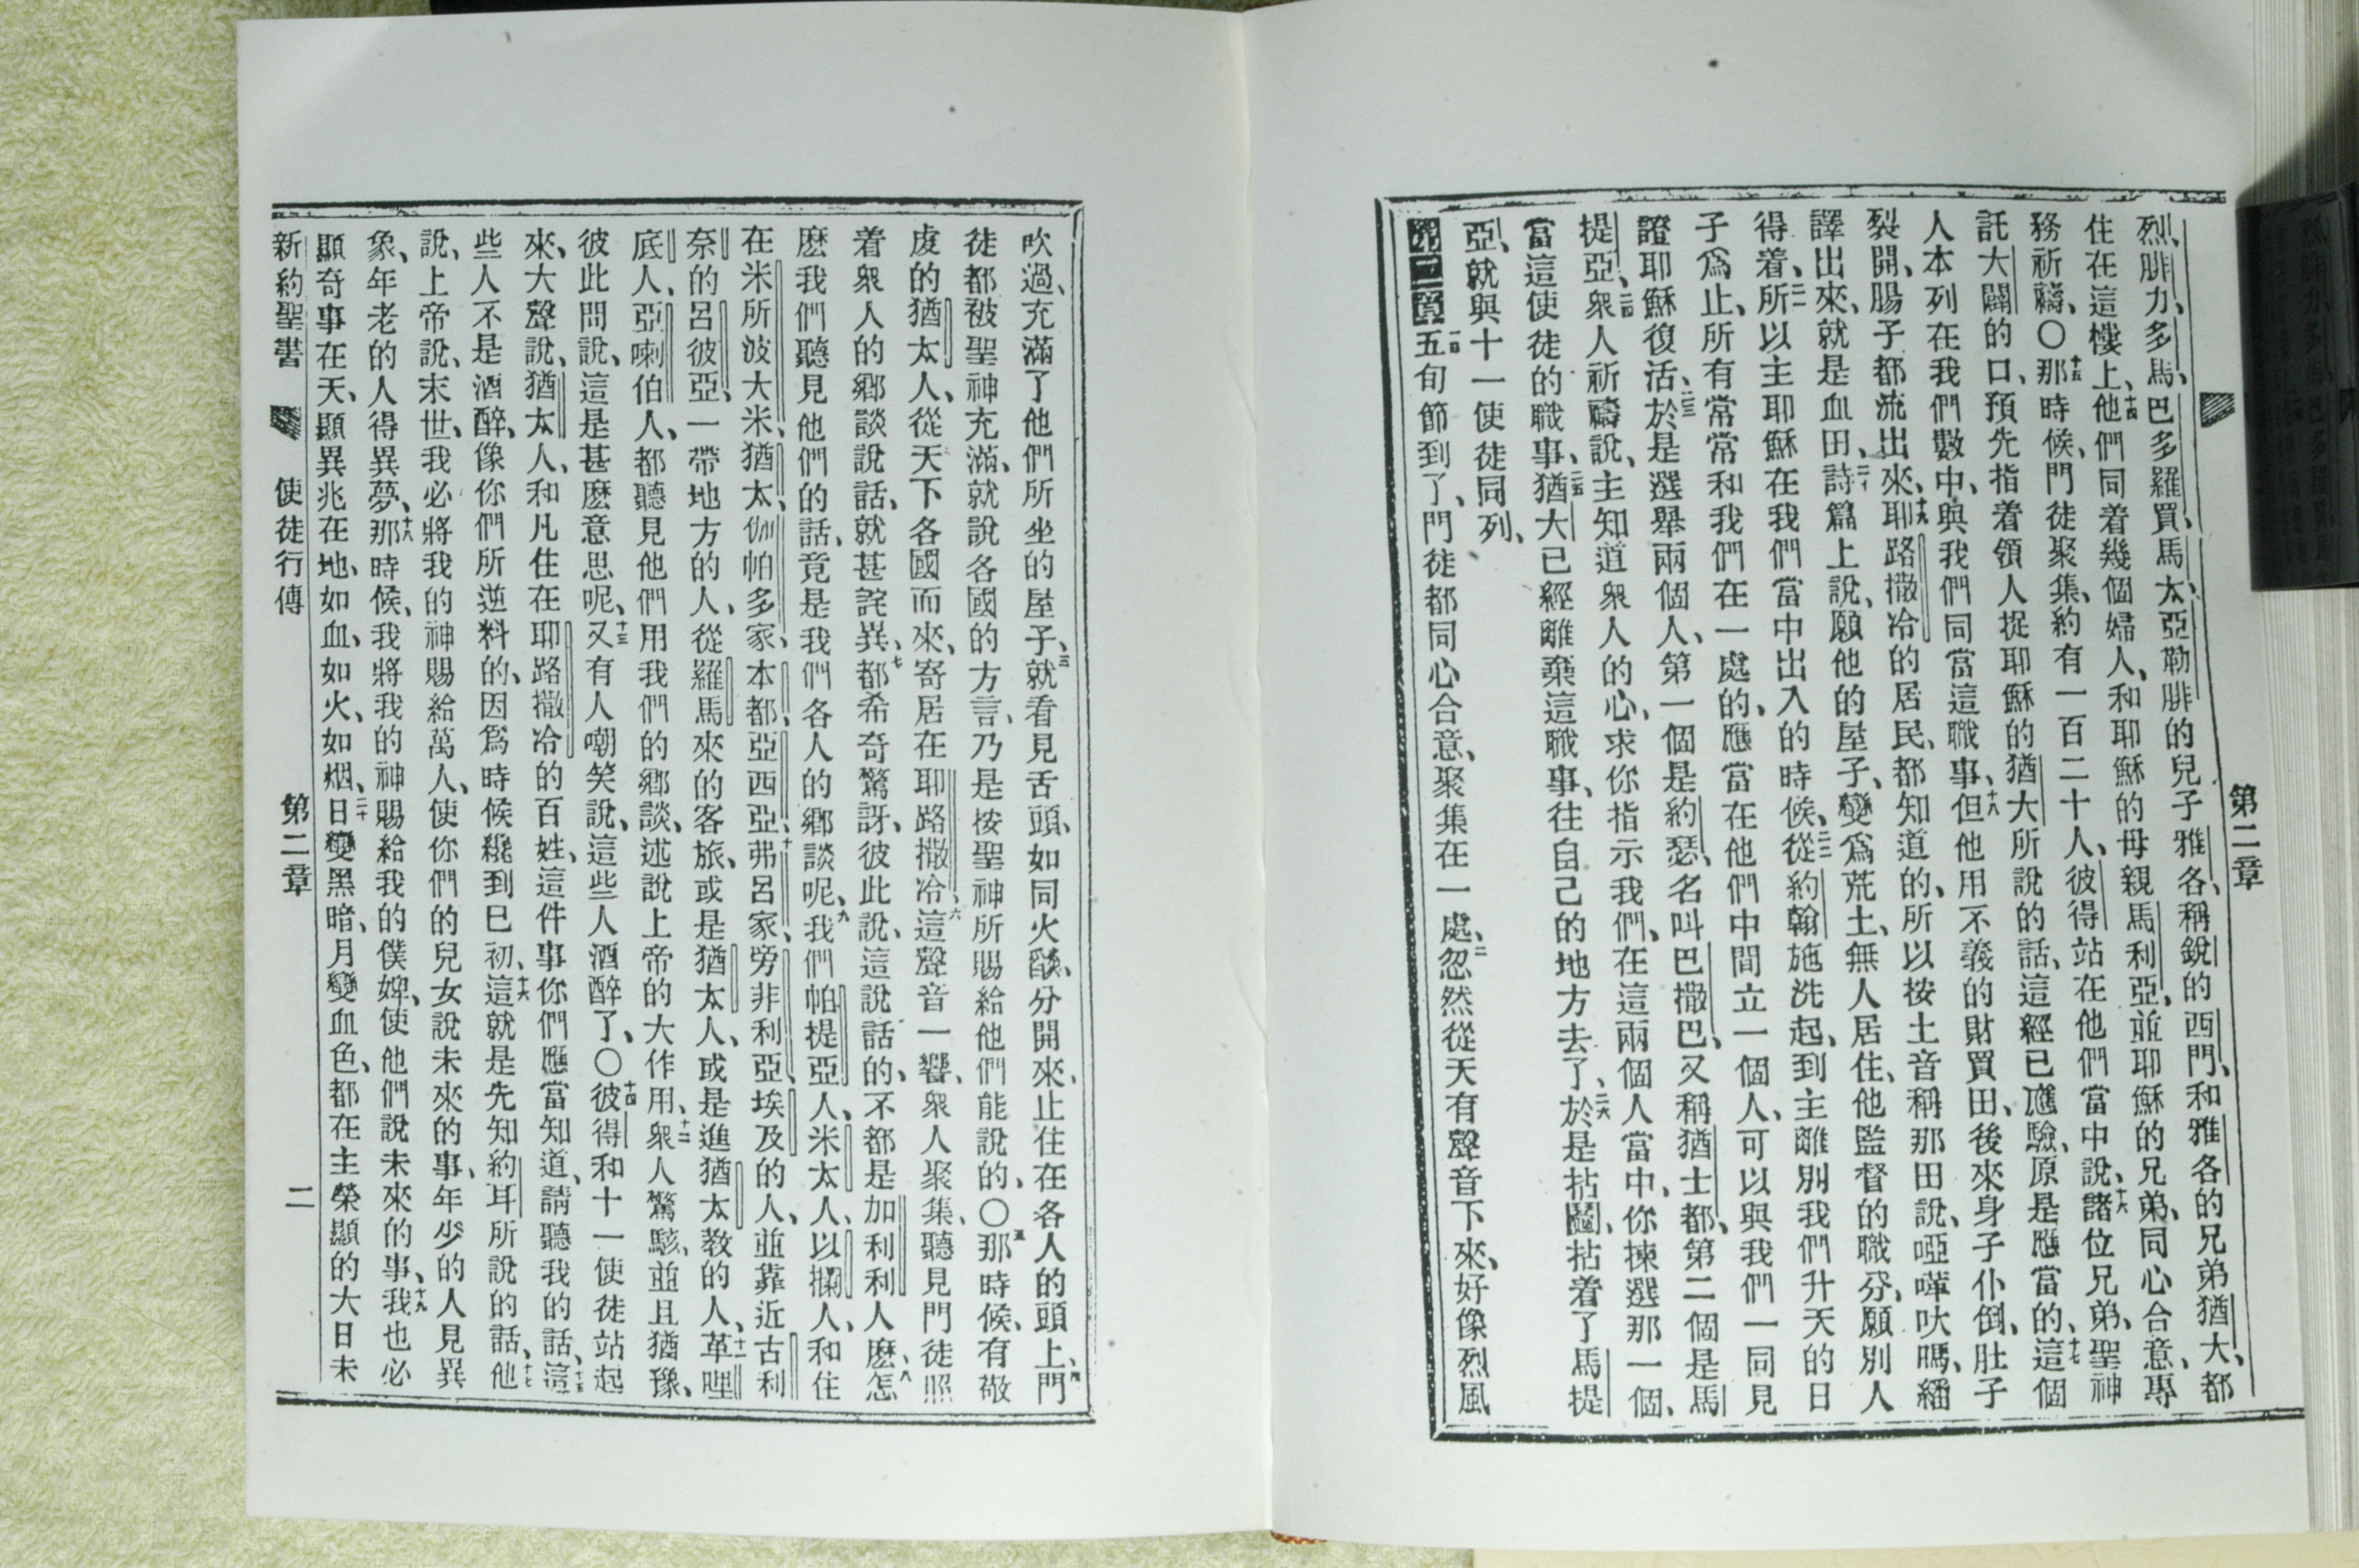 第二章
烈、腓力、多馬、巴多羅買、馬太、亞勒腓的兒子雅各、稱銳的西門、和雅各的兄弟猶大、都
住在這樓上、十四他們同着幾個婦人、和耶穌的母親馬利亞、並耶穌的兄弟、同心合意、專
務祈禱、〇十五那時候、門徒聚集、約有一百二十人、彼得站在他們當中說、十六諸位兄弟、聖神
託大闢的口、預先指着領人捉耶穌的猶大所說的話、這經已應驗、原是應當的、十七這個
人本列在我們數中、與我們同當這職事、十八但他用不義的財買田、後來身子仆倒、肚子
裂開、腸子都流出來、十九耶路撒冷的居民、都知道的、所以按土音稱那田說、啞嘩吠嗎、繙
譯出來、就是血田、二十詩篇上說、願他的屋子、變爲荒土、無人居住、他監督的職分、願別人
得着、二一所以主耶穌在我們當中出入的時候、二二從約翰施洗起、到主離別我們升天的日
子爲止、所有常常和我們在一處的、應當在他們中間立一個人、可以與我們一同見
證耶穌復活、二三於是選舉兩個人、第一個是約瑟、名叫巴撒巴、又稱猶士都、第二個是馬
提亞、二四衆人祈禱說、主知道衆人的心、求你指示我們、在這兩個人當中、你揀選那一個、
當這使徒的職事、二五猶大已經離棄這職事、往自己的地方去了、二六於是拈鬮、拈着了馬提
亞、就與十一使徒同列、
第二章一五旬節到了、門徒都同心合意、聚集在一處、二忽然從天有聲音下來、好像烈風
吹過、充滿了他們所坐的屋子、三就看見舌頭、如同火燄、分開來、止住在各人的頭上、四門
徒都被聖神充滿、就說各國的方言、乃是按聖神所賜給他們能說的、〇五那時候、有敬
虔的猶太人、從天下各國而來、寄居在耶路撒冷、六這聲音一響、衆人聚集、聽見門徒照
着衆人的鄉談說話、就甚詫異、七都希奇驚訝、彼此說、這說話的、不都是加利利人麽、八怎
麽我們聽見他們的話、竟是我們各人的鄉談呢、九我們帕提亞人、米太人、以攔人、和住
在米所波大米、猶太、伽帕多家、本都、亞西亞、十弗呂家、旁非利亞、埃及的人、並靠近古利
奈的呂彼亞、一帶地方的人、從羅馬來的客旅、或是猶太人、或是進猶太教的人、十一革哩
底人、亞喇伯人、都聽見他們用我們的鄉談、述說上帝的大作用、十二衆人驚駭、並且猶豫、
彼此問說、這是甚麽意思呢、十三又有人嘲笑說、這些人酒醉了、〇十四彼得和十一使徒站起
來、大聲說、猶太人、和凡住在耶路撒冷的百姓、這件事你們應當知道、請聽我的話、十五這
些人不是酒醉、像你們所逆料的、因爲時候纔到巳初、十六這就是先知約耳所說的話、十七他
說、上帝說、末世、我必將我的神賜給萬人、使你們的兒女說未來的事、年少的人見異
象、年老的人得異夢、十八那時候、我將我的神賜給我的僕婢、使他們說未來的事、十九我也必
顯奇事在天、顯異兆在地、如血、如火、如烟、二十日變黑暗、月變血色、都在主榮顯的大日未
新約聖書 使徒行傳 第二章 二